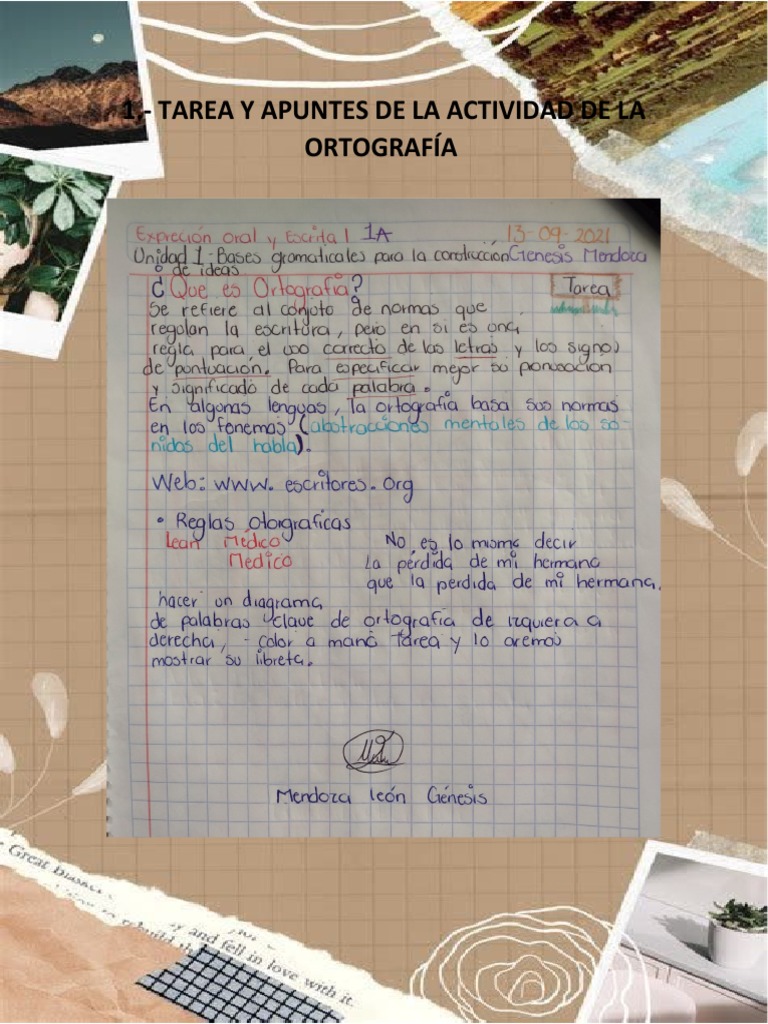 1.- TAREA Y APUNTES DE LA ACTIVIDAD DE LA
ORTOGRAFÍA
Expreción Oral y Escrita 1 1A 13-09-2021
Unidad 1: Bases gromaticales para la construcción Genesis Mendoza
o de ideas
¿Que es Ortografía? Tarea
Se refiere al conjuto de normas que
regulan la escritura, pero en si es una
regla para el uso correcto de las letras y los signos
de puntuación. Para especificar mejor su pronusacion
y significado de cada palabra.
En algunas lenguas, la ortografía basa sus normas
en los fonemas (abstracciones mentales de los so-
nidos del habla).
Web: www.escritores.org
• Reglas otorgraficas
Lean Médico No es lo mismo decir
Medico La pérdida de mi hermana
que la perdida de mi hermana.
hacer un diagrama
de palabras clave de ortografía de izquiera a
derecha, - color a mano Tarea y lo
mostrar su libreta.
Mendoza león Génesis
Great
rebuild
y and fell in love with it.